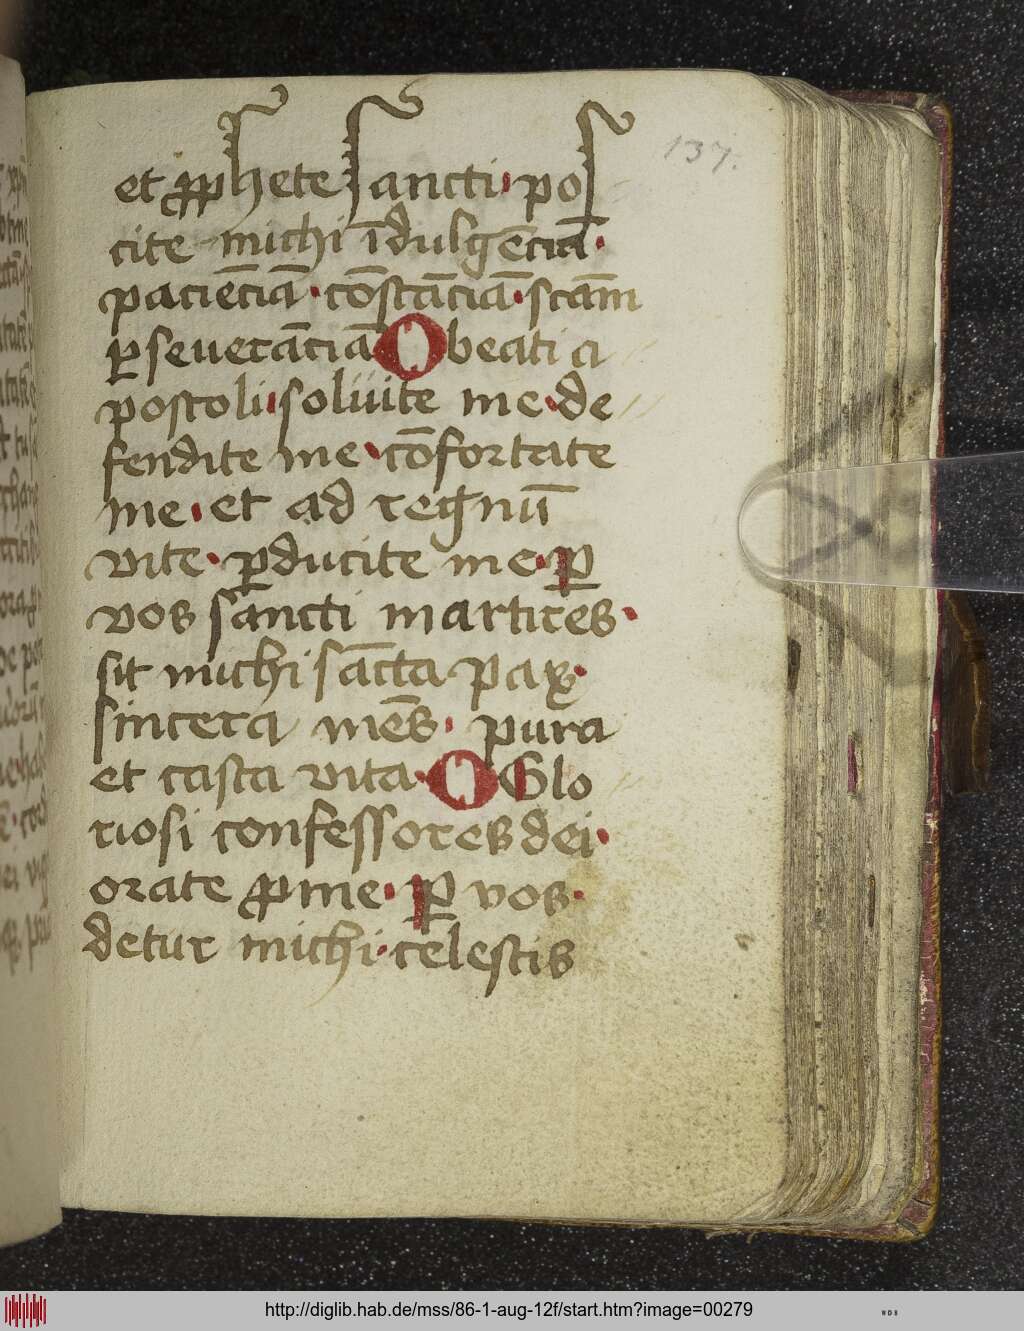 137.
et ꝓphete sancti · pos
cite michi īdulgēciā ·
paciēciā · cōstāciā · scām
ꝑseuerāciā O beati a
postoli · soluite me · de
fendite me · cōfortate
me · et ad regnū
vite · ꝑducite me · ꝑ
vos sancti martires ·
sit michi sācta pax ·
sincera mēs · pura
et casta vita · O Glo
riosi confessores dei ·
orate ꝓ me · ꝑ vos ·
detur michi · celestis
http://diglib.hab.de/mss/86-1-aug-12f/start.htm?image=00279